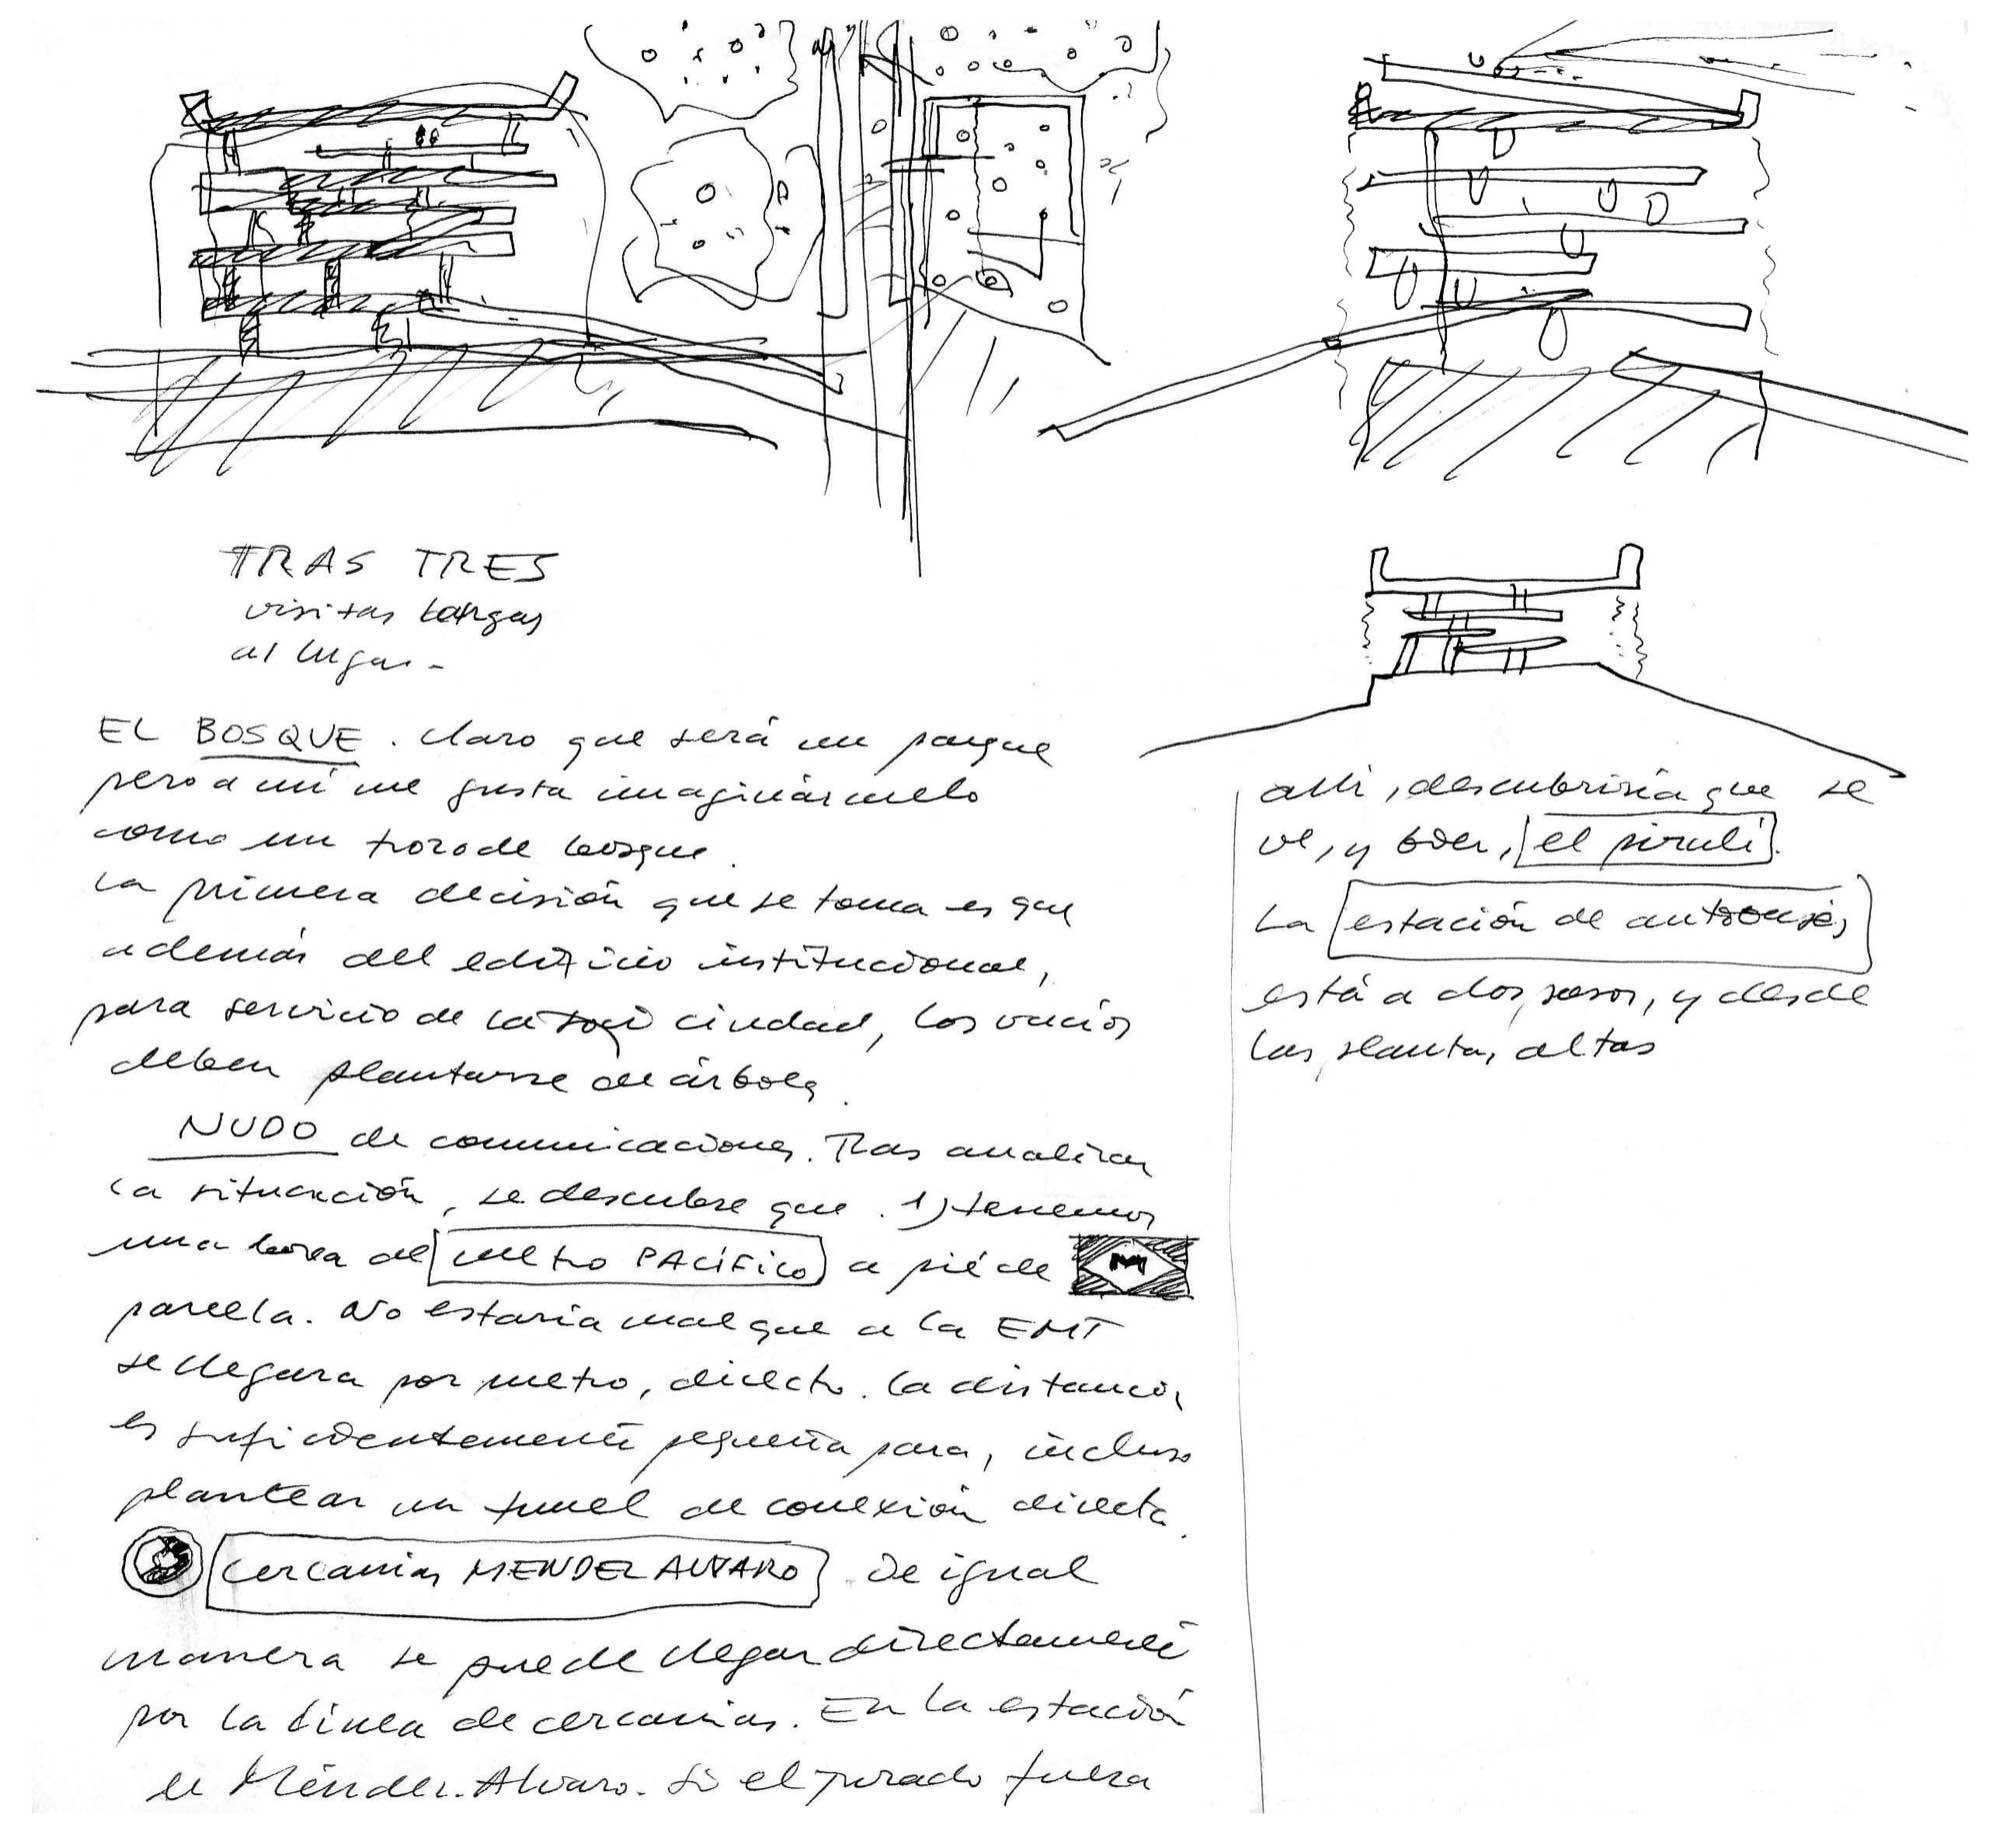 TRAS TRES
visitas largas
al lugar -
EL BOSQUE. Claro que será un parque
pero a mí me gusta imaginármelo
como un trozo de bosque.
La primera decisión que se toma es que
además del edificio institucional,
para servicio de la ciudad, los vacíos
deben plantarse de árboles.
NUDO de comunicaciones. Tras analizar
la situación, se descubre que. 1) tenemos
una boca de metro PACÍFICO a pié de M
parcela. No estaría mal que a la EMT
se llegara por metro, directo. La distancia
es suficientemente pequeña para, incluso
plantear un tunel de conexión directa.
cercanías MENDEZ ALVARO. De igual
manera se puede llegar directamente
por la línea de cercanías. En la estación
de Méndez-Alvaro. Si el jurado fuera
allí, descubriría que se
ve, y bien, el pirulí.
La estación de autobuses,
está a dos pasos, y desde
las plantas altas